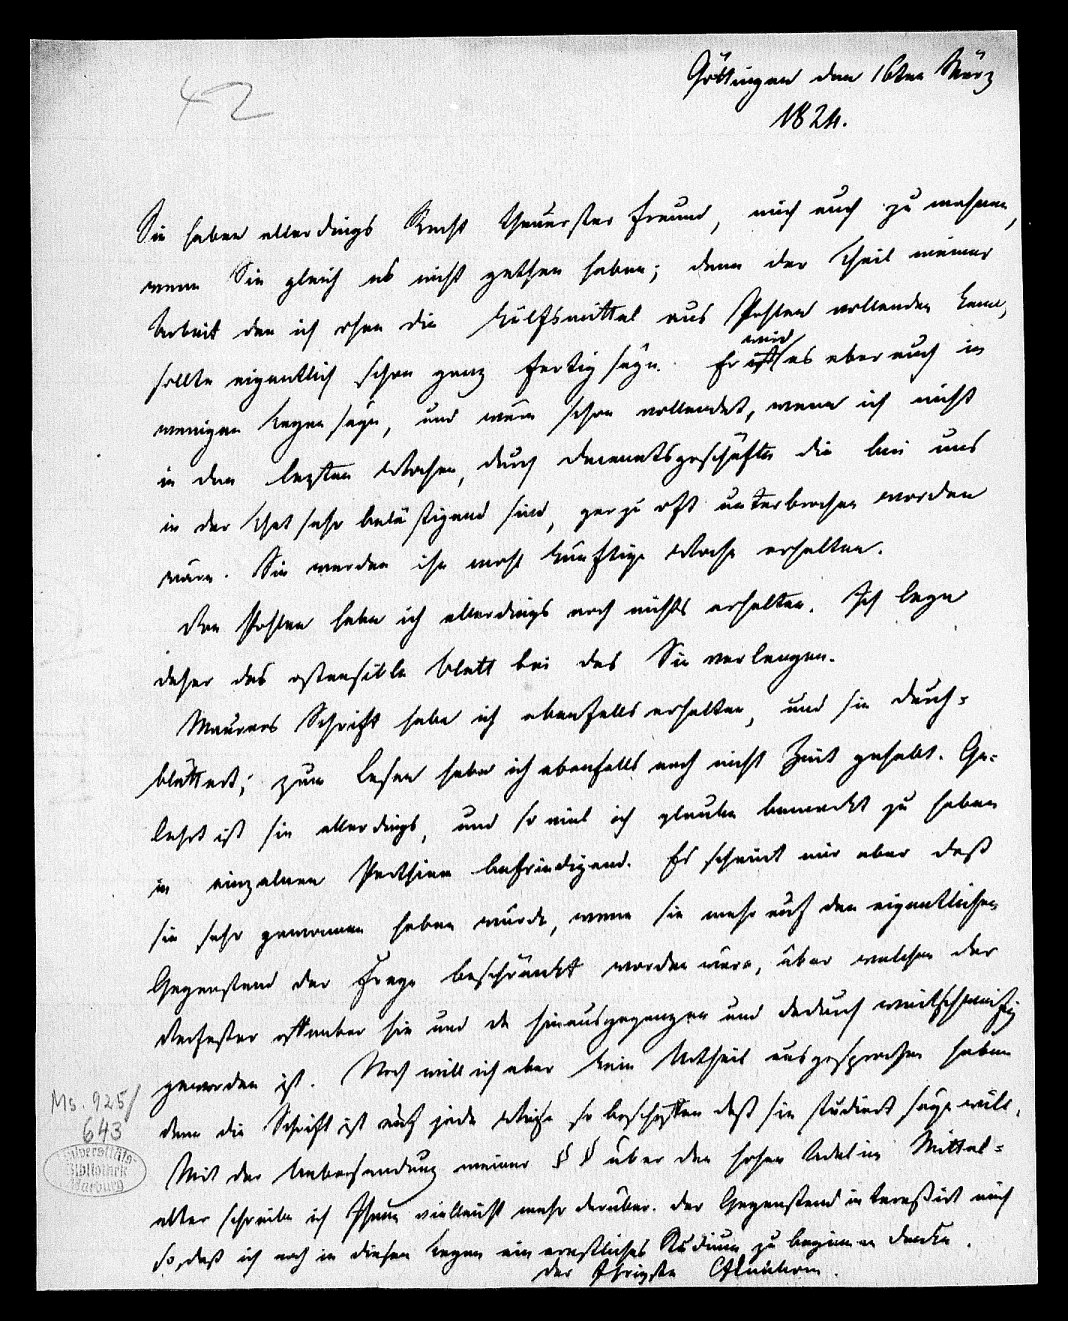 42
Göttingen den 16ten März
1824.
Sie haben allerdings Recht theuerster Freund, mich auch zu mahnen,
wenn Sie gleich es nicht gethan haben; denn der Theil meiner
Arbeit den ich ohne die Hülfsmittel aus Posten vollenden kann,
sollte eigentlich schon ganz fertig seyn. Er wird es aber auch in
wenigen Tagen seyn, und wäre schon vollendet, wenn ich nicht
in den lezten Wochen, durch Decanatsgeschäfte die bei uns
in der That sehr belästigend sind, gar zu oft unterbrochen worden
wäre. Sie werden ihn wohl künftige Woche erhalten.
Von Posten habe ich allerdings noch nichts erhalten. Ich lege
daher das ostensible Blatt bei das Sie verlangen.
Maurers Schrift habe ich ebenfalls erhalten, und sie durch-
blättert; zum Lesen habe ich ebenfalls noch nicht Zeit gehabt. Ge-
lehrt ist sie allerdings, und so viel ich glaube bemerkt zu haben
in einzelnen Parthien befriedigend. Es scheint mir aber daß
sie sehr gewonnen haben würde, wenn sie mehr auf den eigentlichen
Gegenstand der Frage beschränkt worden wäre, über welchen der
Verfasser offenbar hie und da hinausgegangen und dadurch weitschweifig
geworden ist. Noch will ich aber kein Urtheil ausgesprochen haben
denn die Schrift ist auf jede Weise so beschaffen daß sie studiert seyn will.
Mit der Uebersendung meiner § § über den hohen Adel im Mittel-
alter schreibe ich Ihnen vielleicht mehr darüber. Der Gegenstand interessirt mich
so, daß ich noch in diesen Tagen ein ernstliches Studium zu beginnen denke.
der Ihrigste CFEichhorn.
Ms. 925/
643
Universitäts-
Bibliothek
Marburg